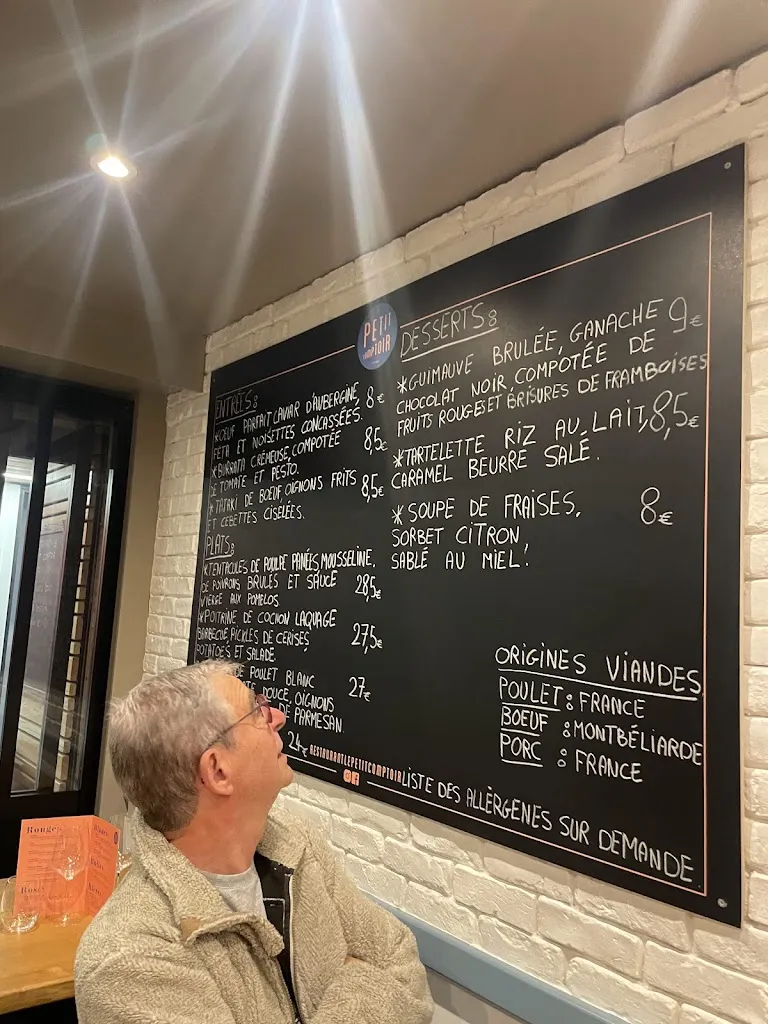 PETIT
COMPTOIR
ENTRÉES:
*OEUF PARFAIT CAVIAR D'AUBERGINE, 8€
FETA ET NOISETTES CONCASSÉES.
*BURRATA CRÉMEUSE, COMPOTÉE 8,5€
DE TOMATE ET PESTO.
*TATAKI DE BOEUF, OIGNONS FRITS 8,5€
ET CEBETTES CISELÉES.
PLATS:
*TENTACULES DE POULPE PANÉES, MOUSSELINE,
DE POIVRONS BRULÉS ET SAUCE 28,5€
VIERGE AUX POMELOS
*POITRINE DE COCHON LAQUAGE
BARBECUE, PICKLES DE CERISES, 27,5€
POTATOES ET SALADE.
DE POULET BLANC 27€
DOUCE, OIGNONS
DE PARMESAN.
24€
DESSERTS:
*GUIMAUVE BRULÉE, GANACHE 9€
CHOCOLAT NOIR, COMPOTÉE DE
FRUITS ROUGES ET BRISURES DE FRAMBOISES
*TARTELETTE RIZ AU LAIT, 8,5€
CARAMEL BEURRE SALÉ.
*SOUPE DE FRAISES, 8€
SORBET CITRON,
SABLÉ AU MIEL!
ORIGINES VIANDES
POULET: FRANCE
BOEUF: MONTBÉLIARDE
PORC: FRANCE
RESTAURANTLEPETITCOMPTOIR
LISTE DES ALLÈRGENES SUR DEMANDE
Rouges
Rosés
Bulles